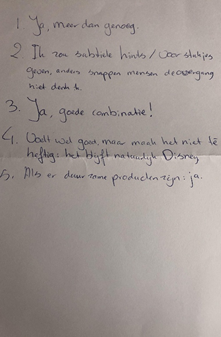 1 Ja, meer dan genoeg.
2 Ik zou subtiele hints / voorstukjes
geven, anders snappen mensen de overgang
niet denk ik.
3. Ja, goede combinatie!
4. Wordt wel goed, maar maak het niet te
heftig: het blijft natuurlijk Disney
5. Als er duurzame producten zijn: ja.